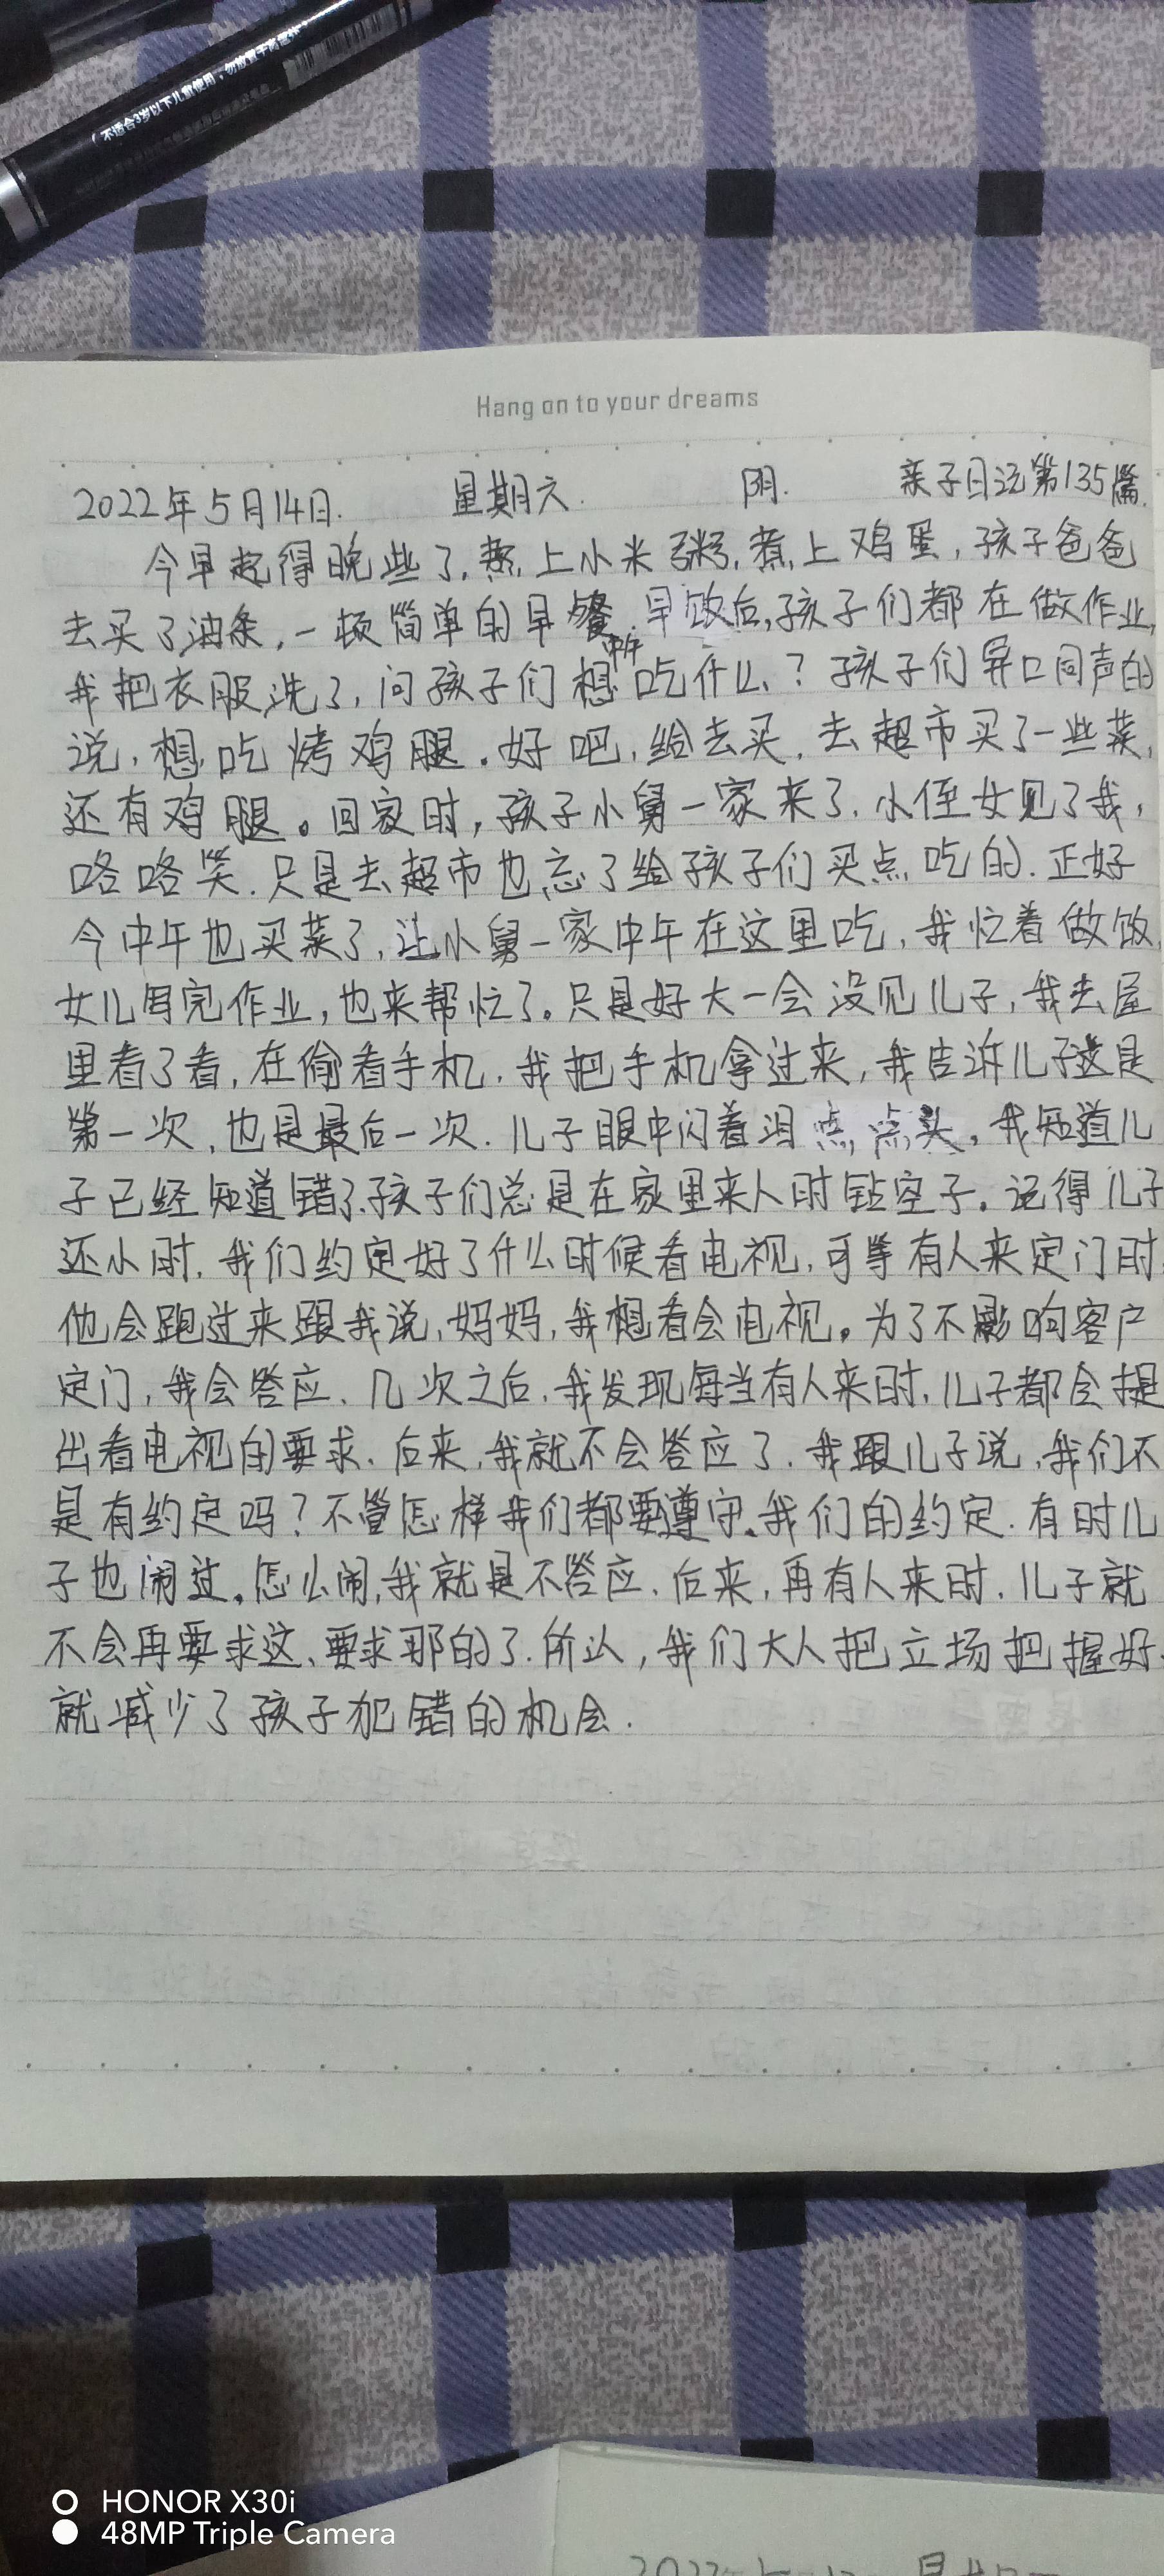 不适合3岁以下儿童使用,勿放置于高温处
Hang on to your dreams
2022年5月14日. 星期六. 阴. 亲子日记第135篇.
今早起得晚些了,熬上小米粥,煮上鸡蛋,孩子爸爸
去买了油条,一顿简单的早餐.早饭后,孩子们都在做作业,
我把衣服洗了,问孩子们想中午吃什么?孩子们异口同声的
说,想吃烤鸡腿。好吧,给去买.去超市买了一些菜,
还有鸡腿。回家时,孩子小舅一家来了.小侄女见了我,
咯咯笑.只是去超市也忘了给孩子们买点吃的.正好
今中午也买菜了,让小舅一家中午在这里吃,我忙着做饭,
女儿写完作业,也来帮忙了。只是好大一会没见儿子,我去屋
里看了看,在偷看手机.我把手机拿过来,我告诉儿子这是
第一次,也是最后一次.儿子眼中闪着泪点点头。我知道儿
子已经知道错了.孩子们总是在家里来人时钻空子。记得儿子
还小时,我们约定好了什么时候看电视,可等有人来定门时,
他会跑过来跟我说,妈妈,我想看会电视。为了不影响客户
定门,我会答应.几次之后,我发现每当有人来时,儿子都会提
出看电视的要求.后来,我就不会答应了.我跟儿子说,我们不
是有约定吗?不管怎样我们都要遵守。我们的约定.有时儿
子也闹过。怎么闹,我就是不答应.后来,再有人来时.儿子就
不会再要求这、要求那的了.所以,我们大人把立场把握好.
就减少了孩子犯错的机会.
HONOR X30i
48MP Triple Camera